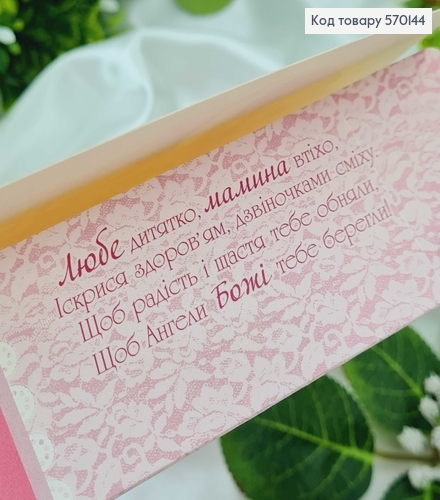 Код товару 570144
Любе дитятко, мамина втіхо,
Іскрися здоров'ям, дзвіночками сміху
Щоб радість і щастя тебе обняли,
Щоб Ангели Божі тебе берегли!